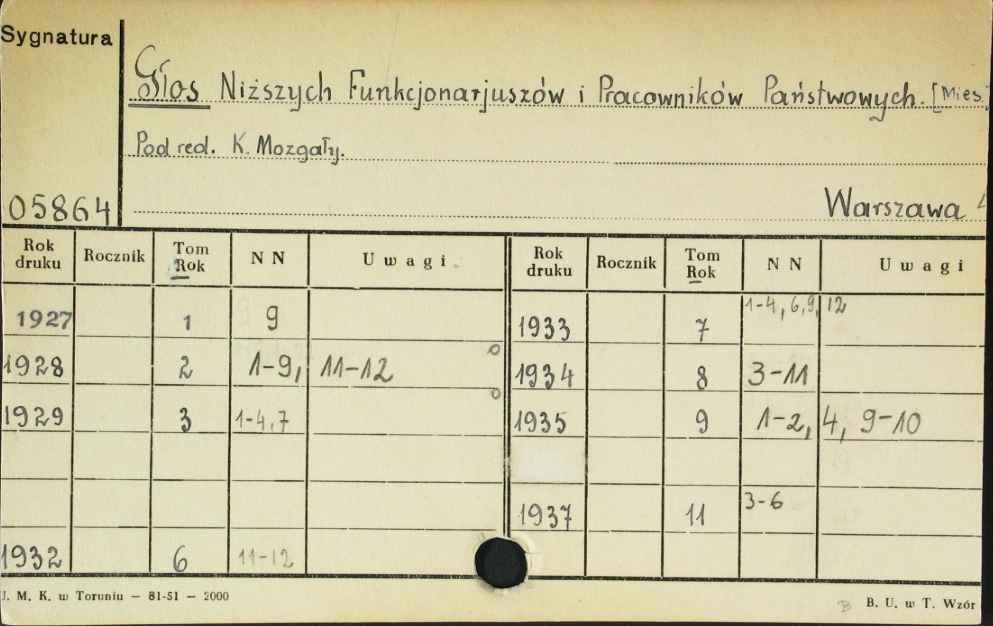 Sygnatura
Głos Niższych Funkcjonarjuszów i Pracowników Państwowych. [Mies.]
Pod red. K. Mozgały.
05864
Warszawa
Rok druku Rocznik Tom Rok N N Uwagi Rok druku Rocznik Tom Rok N N Uwagi
1927 1 9 1933 7 1-4, 6, 9, 12
1928 2 1-9, 11-12 1934 8 3-11
1929 3 1-4, 7 1935 9 1-2, 4, 9-10
1937 11 3-6
1932 6 11-12
J. M. K. w Toruniu — 81-51 — 2000
B. U. w T. Wzór